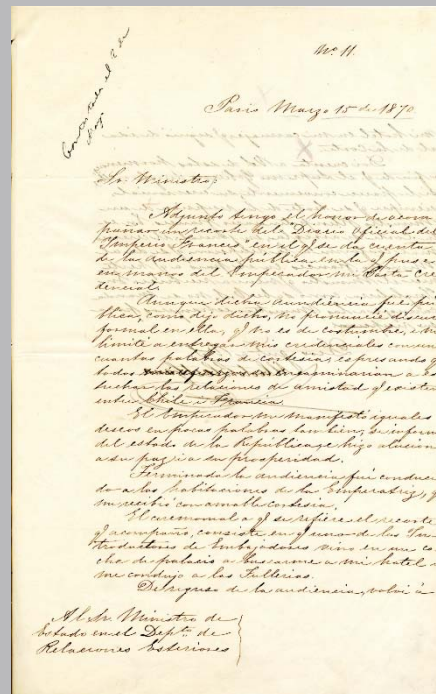 Nº 11.
Contestada el 2 de
Mayo
Paris Marzo 15 de 1870
Sr. Ministro,
Adjunto tengo el honor de acom
pañar un recorte del "Diario Oficial del
Imperio Frances" en el q. se da cuenta
de la audiencia pública en la q.
en manos del Emperador mi Carta Cre
dencial.
Aunque dicha audiencia fué pú
blica, como dejo dicho, no pronuncié discur
formal en ella, q. no es de costumbre, i me
limité a entregar mis credenciales con un
cuantas palabras de cortesia, espresando q
todos se encaminarian a es
trechar las relaciones de amistad q. existe
entre Chile i Francia.
El Emperador me manifestó iguales
deseos en pocas palabras tambien, se inform
del estado de la República, e hizo alusion
a su paz i a su prosperidad.
Terminada la audiencia fuí conduci
do a las habitaciones de la Emperatriz, q
me recibió con amable cortesia.
El ceremonial a q. se refiere el recorte
q. acompaño, consiste en q. uno de los In
troductores de Embajadores vino en un co
che de palacio a buscarme a mi hotel
me condujo a las Tullerias.
De regreso de la audiencia, volví a
Al Sr. Ministro de
Estado en el Depto. de
Relaciones Esteriores